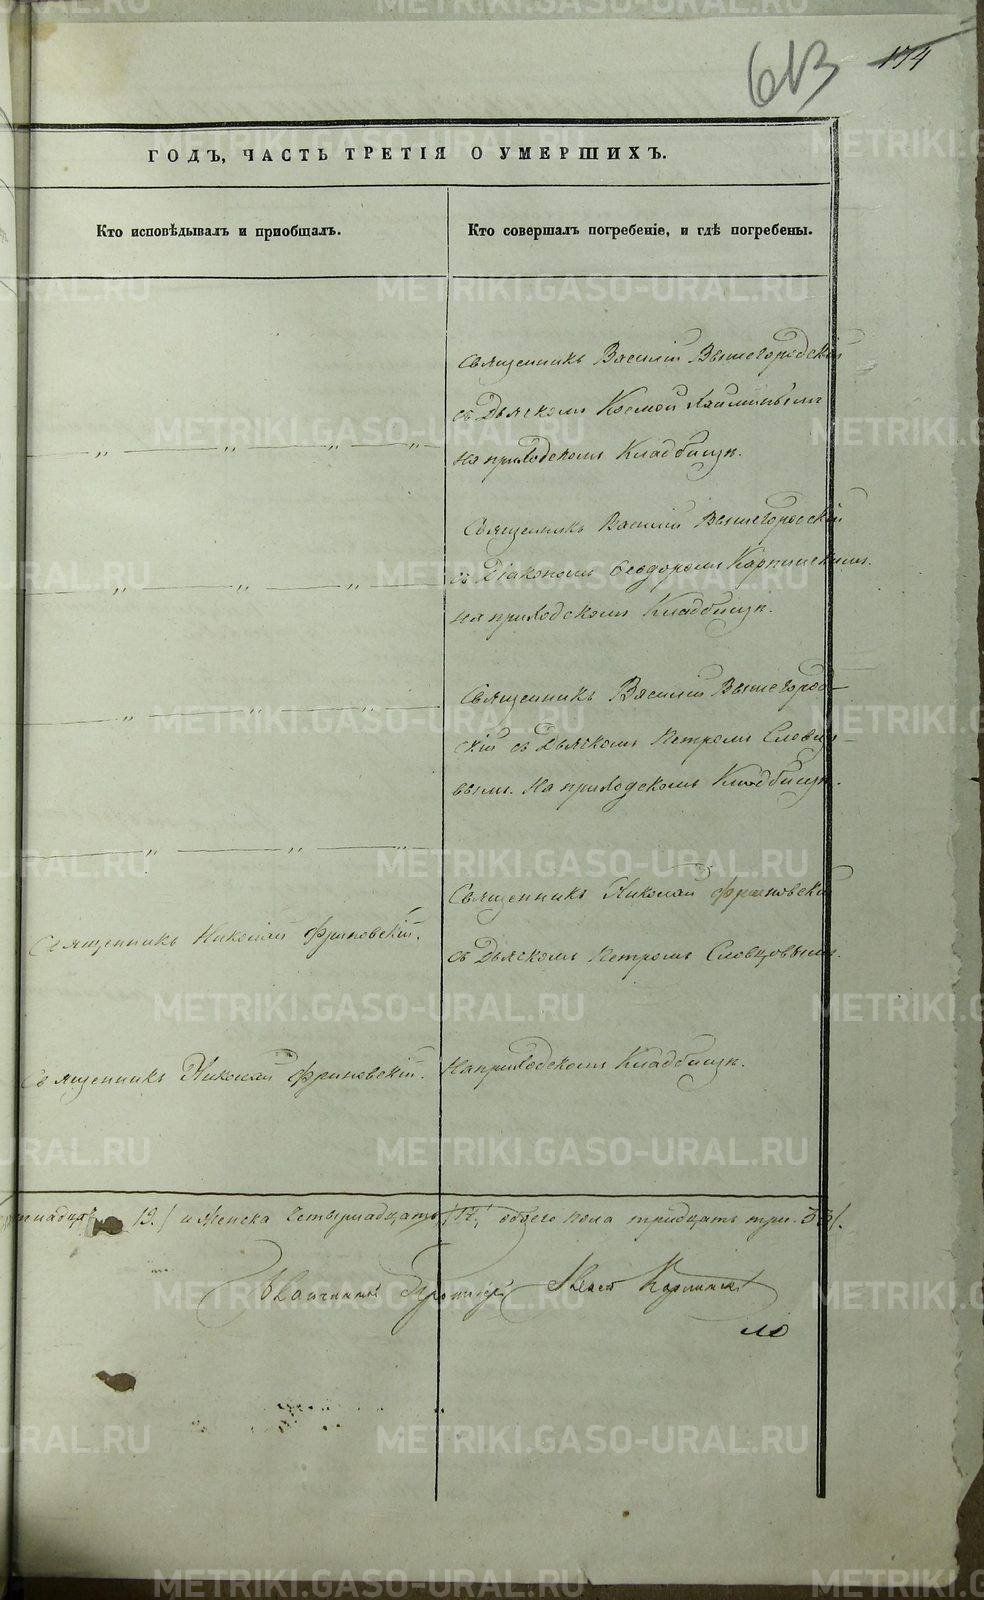 613 174
ГОДЪ, ЧАСТЬ ТРЕТІЯ О УМЕРШИХЪ.
Кто исповѣдывалъ и приобщалъ.
Кто совершалъ погребеніе, и гдѣ погребены.
Священникъ Василій Вышегородскій
съ Дьячкомъ Космой
на приходскомъ Кладбищѣ.
Священникъ Василій Вышегородскій
съ Діакономъ Ѳеодоромъ Карпинскимъ.
на приходскомъ Кладбищѣ.
Священникъ Василій Вышегород-
скій съ Дьячкомъ Петромъ Словцо-
вымъ. на приходскомъ Кладбищѣ.
Священникъ Николай Фриновскій.
Священникъ Николай Фриновскій
съ Дьячкомъ Петромъ Словцовымъ.
Священникъ Николай Фриновскій.
На приходскомъ Кладбищѣ.
19./ и женска четырнадцать /14./ обоего пола тридцать три. 33/.
Карпинскі
METRIKI.GASO-URAL.RU